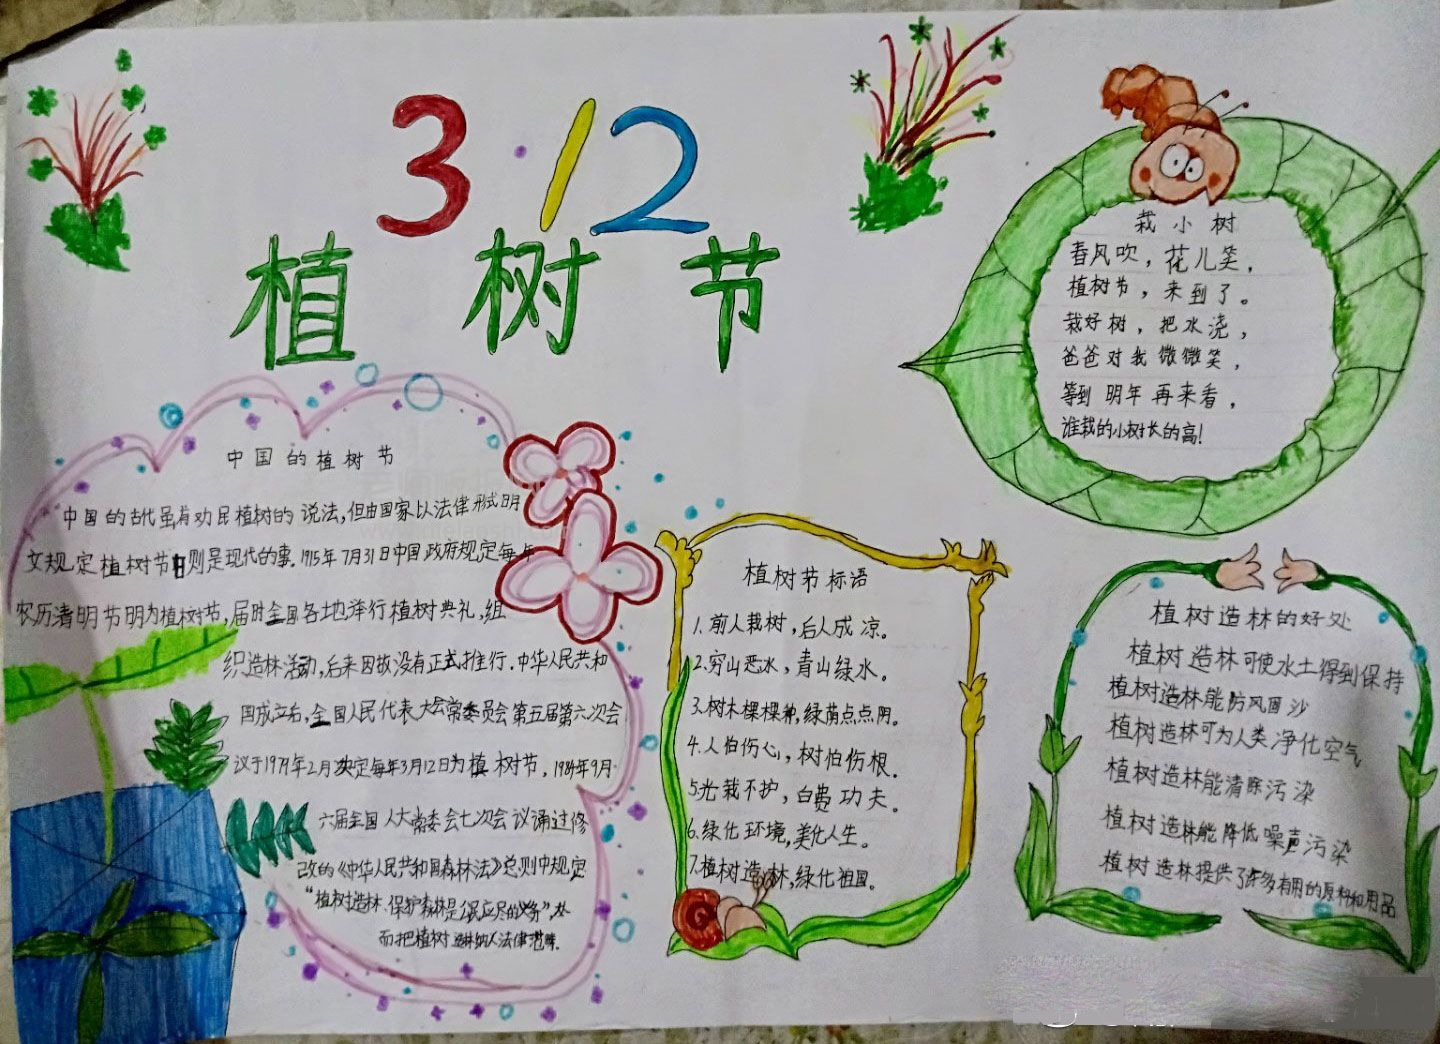 3·12
植树节
栽小树
春风吹，花儿笑，
植树节，来到了。
栽好树，把水浇，
爸爸对我微微笑，
等到明年再来看，
谁栽的小树长的高！
中国的植树节
中国的古代虽有劝民植树的说法，但由国家以法律形式明
文规定植树节日则是现代的事。1915年7月31日中国政府规定每年
农历清明节明为植树节，届时全国各地举行植树典礼，组
织造林活动，后来因故没有正式推行。中华人民共和
国成立后，全国人民代表大会常委员会第五届第六次会
议于1979年2月决定每年3月12日为植树节，1984年9月·
六届全国人大常委会七次会议诵过修
改的《中华人民共和国森林法》总则中规定
"植树造林、保护森林是公民应尽的义务"，从
而把植树造林纳入法律范畴。
植树节标语
1.前人栽树，后人成凉。
2.穷山恶水，青山绿水。
3.树木棵棵种，绿荫点点阴。
4.人怕伤心，树怕伤根．
5.光栽不护，白费功夫。
6.绿化环境，美化人生。
7.植树造林，绿化祖国。
植树造林的好处
植树造林可使水土得到保持
植树造林能防风固沙
植树造林可为人类净化空气
植树造林能清除污染
植树造林能降低噪声污染
植树造林提供了许多有用的原料和用品